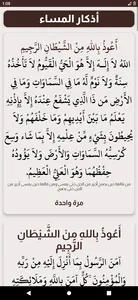 1:08
أذكار المساء
أَعُوذُ بِاللهِ مِنْ الشَّيْطَانِ الرَّجِيمِ
اللهُ لاَ إِلَـهَ إِلاَّ هُوَ الْحَيُّ الْقَيُّومُ لاَ تَأْخُذُهُ
سِنَةٌ وَلاَ نَوْمٌ لَّهُ مَا فِي السَّمَاوَاتِ وَمَا فِي
الأَرْضِ مَن ذَا الَّذِي يَشْفَعُ عِنْدَهُ إِلاَّ بِإِذْنِهِ
يَعْلَمُ مَا بَيْنَ أَيْدِيهِمْ وَمَا خَلْفَهُمْ وَلاَ
يُحِيطُونَ بِشَيْءٍ مِّنْ عِلْمِهِ إِلاَّ بِمَا شَاء وَسِعَ
كُرْسِيُّهُ السَّمَاوَاتِ وَالأَرْضَ وَلاَ يَؤُودُهُ
حِفْظُهُمَا وَهُوَ الْعَلِيُّ الْعَظِيمُ
مرة واحدة
أَعُوذُ بِاللهِ مِنْ الشَّيْطَانِ
الرَّجِيمِ
آمَنَ الرَّسُولُ بِمَا أُنْزِلَ إِلَيْهِ مِنْ رَبِّهِ
وَالْمُؤْمِنُونَ كُلٌّ آمَنَ بِاللَّهِ وَمَلَائِكَتِهِ